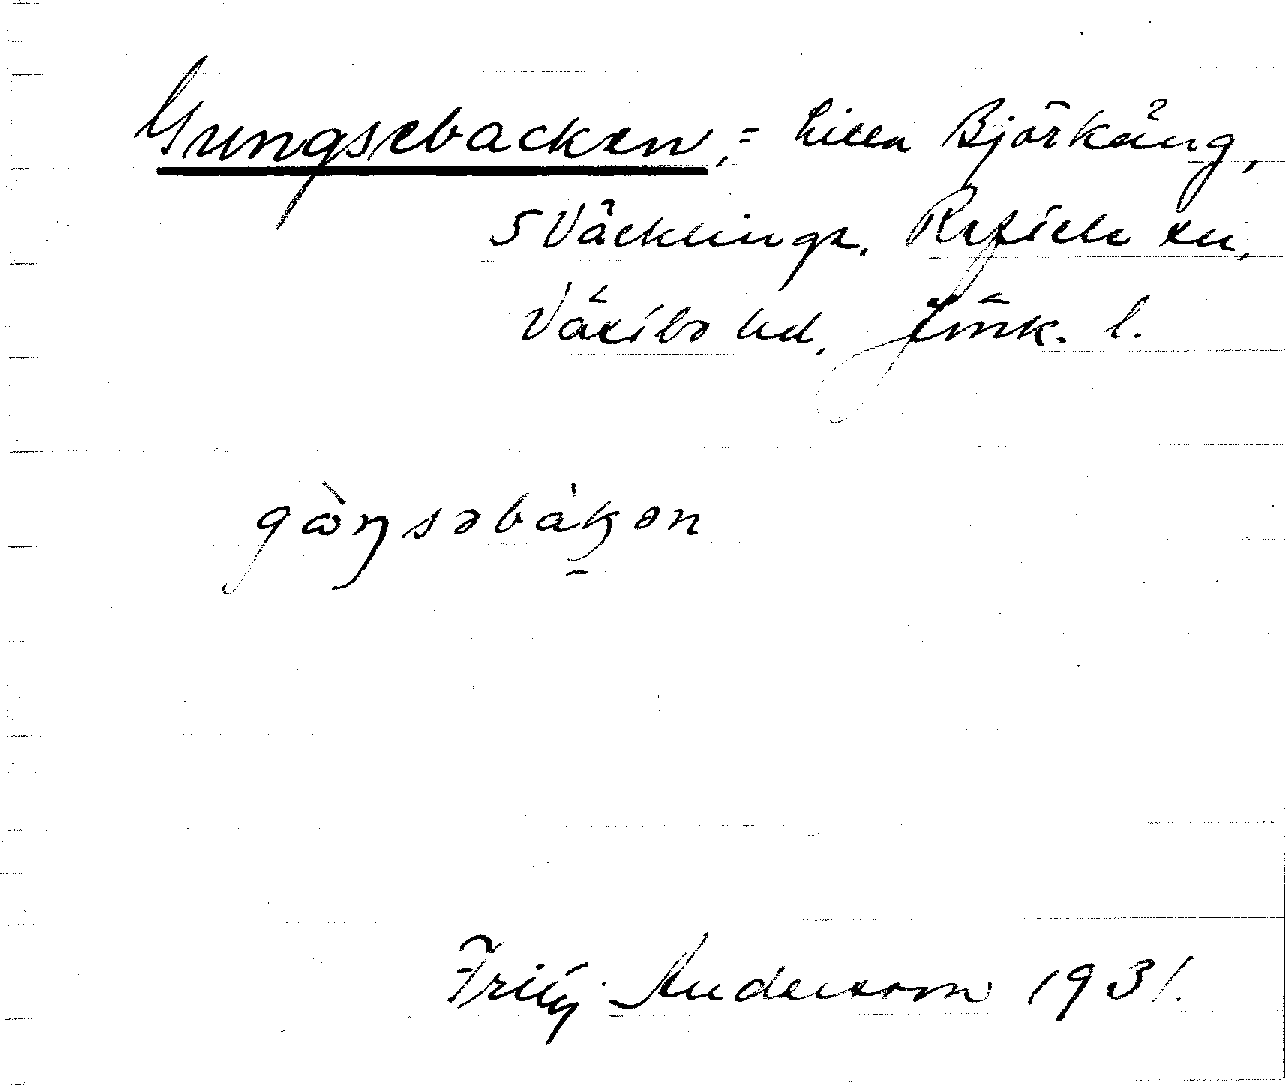 Gungsebacken, = Lilla Björkäng,
5 Väcklinge, Reftele sn,
Västbo hd, Jönk. l.
gὼŋsəbàkən
Fritz Anderson 1931.